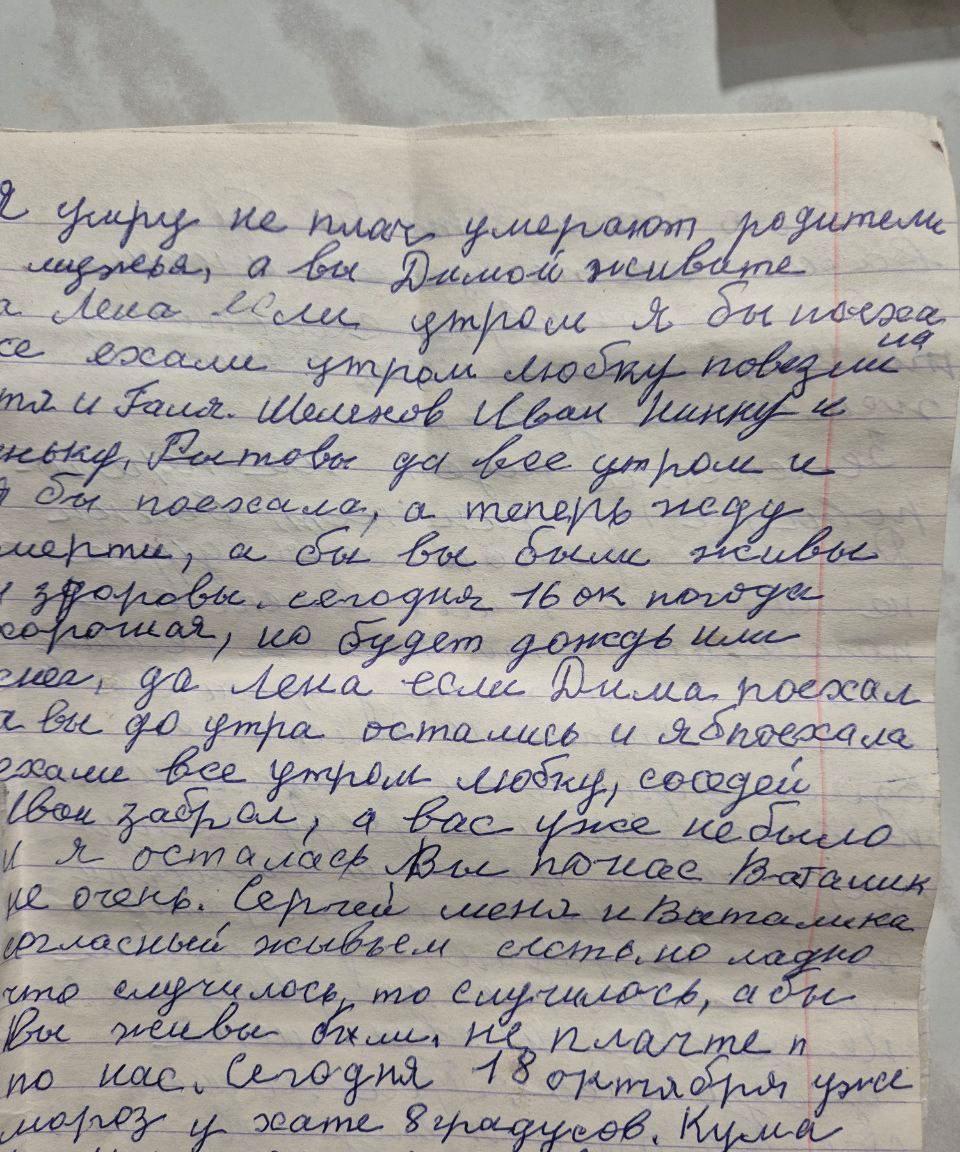 я умру не плач умерают родители
а вы Димой живите
а Лена если утром я бы поеха
се ехали утром Любку повезли на
тя и Галя. Шелехов Иван Нинку и
ньку, да все утром и
я бы поехала, а теперь жду
мерти, а бы вы были живы
и здоровы. сегодня 16 ок погода
хорошая, но будет дождь или
снег, да Лена если Дима поехал
а вы до утра остались и я б поехала
ехали все утром Любку, соседей
Иван забрал, а вас уже не было
и я осталась Вы по нас Ваталик
не очень. Сергей меня и Ваталика
согласный жывьем сьесть, но ладно
что случилось, то случилось, а бы
Вы живы были. не плачте п
по нас. Сегодня 18 октября уже
мороз у хате 8 градусов. Кума